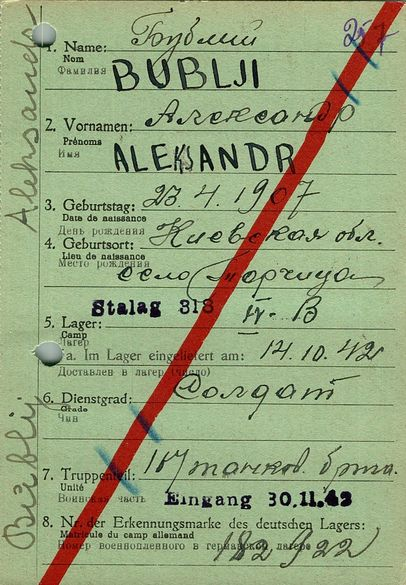 257
1. Name: Бублий
Nom
Фамилия
BUBLJI
2. Vornamen: Александр
Prénoms
Имя
ALEKSANDR
3. Geburtstag: 23.4.1907
Date de naissance
День рождения
4. Geburtsort: Киевская обл.
Lieu de naissance
Место рождения
село Торчица
Stalag 318
5. Lager: IV-B
Camp
Лагерь
a. Im Lager eingeliefert am: 14.10.42
Доставлен в лагерь (число)
6. Dienstgrad: Солдат
Grade
Чин
7. Truppenteil: 107 танков. брига.
Unité
Воинская часть
Eingang 30.11.42
8. Nr. der Erkennungsmarke des deutschen Lagers:
Matricule du camp allemand
Номер военнопленного в германском лагере
182922
Aleksandr